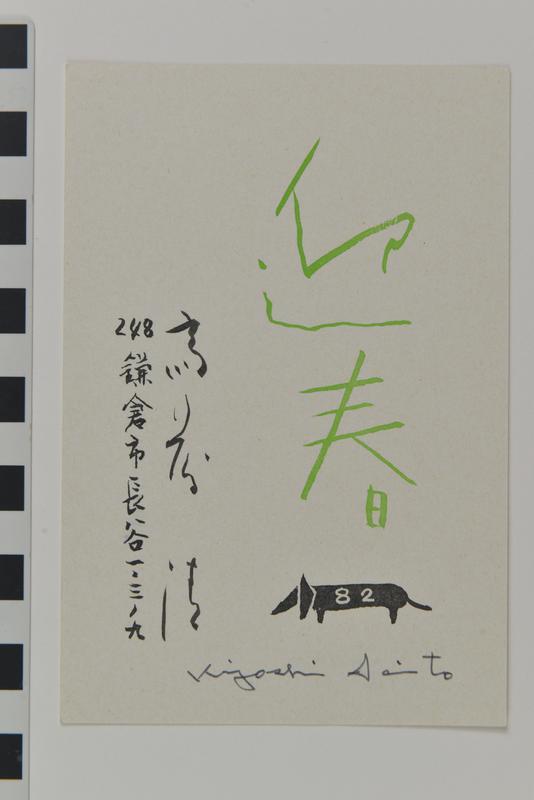 迎春
82
斎藤 清
248 鎌倉市長谷一・三ノ九
Kiyoshi Saito